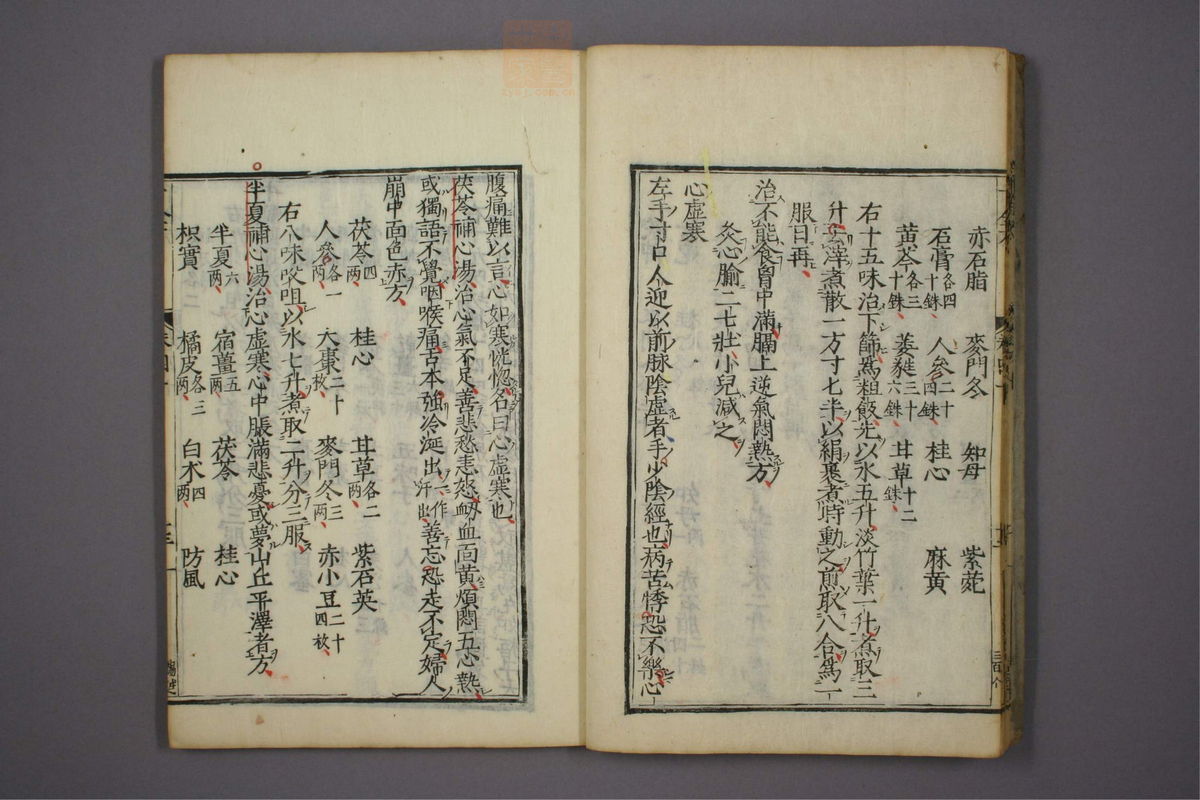 赤石脂 麥門冬 知母 紫菀
石膏各四十銖 人參二十四銖 桂心 麻黃
黃芩各三十銖 萎蕤三十六銖 甘草十二銖
右十五味治下篩爲粗散先以水五升淡竹葉一升煮取三
升去滓煮散一方寸七半以絹裹煮時動之煎取八合爲一
服日再
治不能食胷中滿膈上逆氣悶熱方
灸心腧二七壯小兒減之
心虛寒
左手寸口人迎以前脉陰虛者手少陰經也病苦悸恐不樂心
腹痛難以言心如寒恍惚名曰心虛寒也
茯苓補心湯治心氣不足善悲愁恚怒衂血面黃煩悶五心熱
或獨語不覺咽喉痛舌本強冷涎出一作汗出善忘恐走不定婦人
崩中面色赤方
茯苓四兩 桂心 甘草各二兩 紫石英
人參各一兩 大棗二十枚 麥門冬三兩 赤小豆二十四枚
右八味㕮咀以水七升煮取二升分三服
半夏補心湯治心虛寒心中脹滿悲憂或夢山丘平澤者方
半夏六兩 宿薑五兩 茯苓 桂心
枳實 橘皮各三兩 白朮四兩 防風
zysj.com.cn